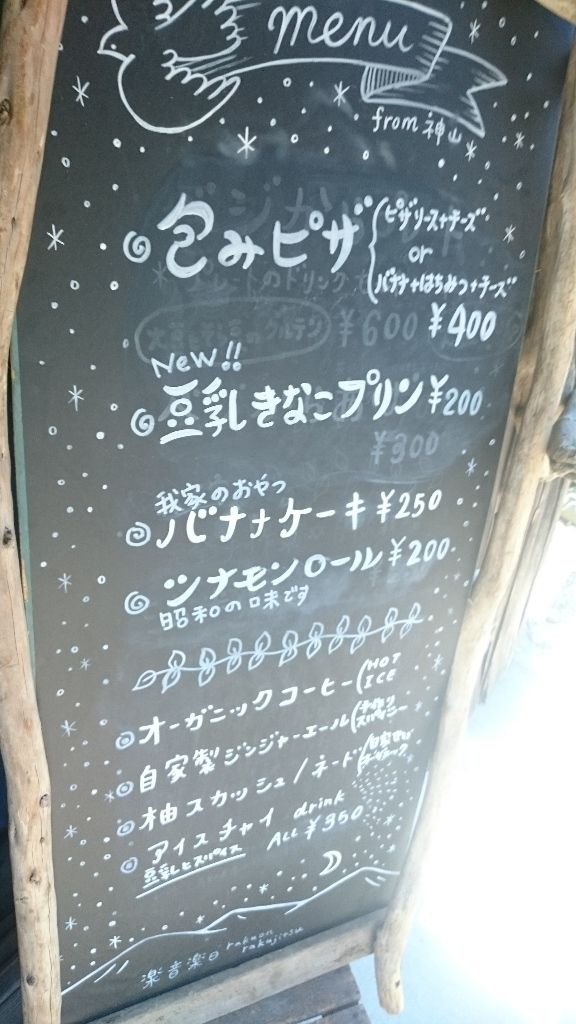 menu
from 神山
包みピザ
ピザソース+チーズ
or
バナナ+はちみつ+チーズ
¥400
NEW!!
豆乳きなこプリン ¥200
我家のおやつ
バナナケーキ ¥250
シナモンロール ¥200
昭和の味です
オーガニックコーヒー(HOT
ICE
自家製ジンジャーエール(手作り
スパイシー
柚スカッシュ/ネード
アイスチャイ
豆乳とスパイス
drink
ALL ¥350
楽音楽日
rakuon
rakujitsu